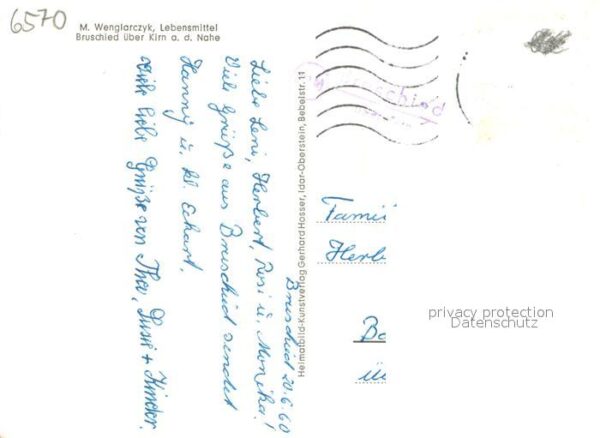 6570
M. Wenglarczyk, Lebensmittel
Bruschied über Kirn a. d. Nahe
Bruschied 20.6.60
Liebe Leni, Herbert, Rosi u. Monika!
Viele Grüße aus Bruschied sendet
Hanny u. W. Eckart.
Viele liebe Grüße von Theo, Susi + Kinder.
Heimatbild-Kunstverlag Gerhard Hosser, Idar-Oberstein, Bebelstr. 11
Bruschied
Famil
Herb
Ba
privacy protection
Datenschutz